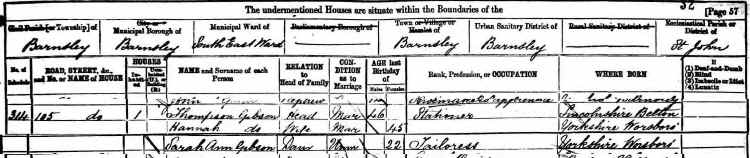 The undermentioned Houses are situate within the Boundaries of the
52
[Page 57
Civil Parish [or Township] of
City or Municipal Borough of
Municipal Ward of
Parliamentary Borough of
Town or Village or Hamlet of
Urban Sanitary District of
Rural Sanitary District of
Ecclesiastical Parish or District of
Barnsley Barnsley South East Ward Barnsley Barnsley St John
No. of Schedule
ROAD, STREET, &c., and No. or NAME of HOUSE
HOUSES
Inhabited
Uninhabited (U.), or Building (B.)
NAME and Surname of each Person
RELATION to Head of Family
CONDITION as to Marriage
AGE last Birthday of
Males Females
Rank, Profession, or OCCUPATION
WHERE BORN
If
(1) Deaf-and-Dumb
(2) Blind
(3) Imbecile or Idiot
(4) Lunatic
John
314 105 do 1 Thompson Gibson Head Mar 46 Lincolnshire Belton
Hannah do Wife Mar 45 Yorkshire Worsboro'
Sarah Ann Gibson Daur Unm 22 Tailoress Yorkshire Worsboro'